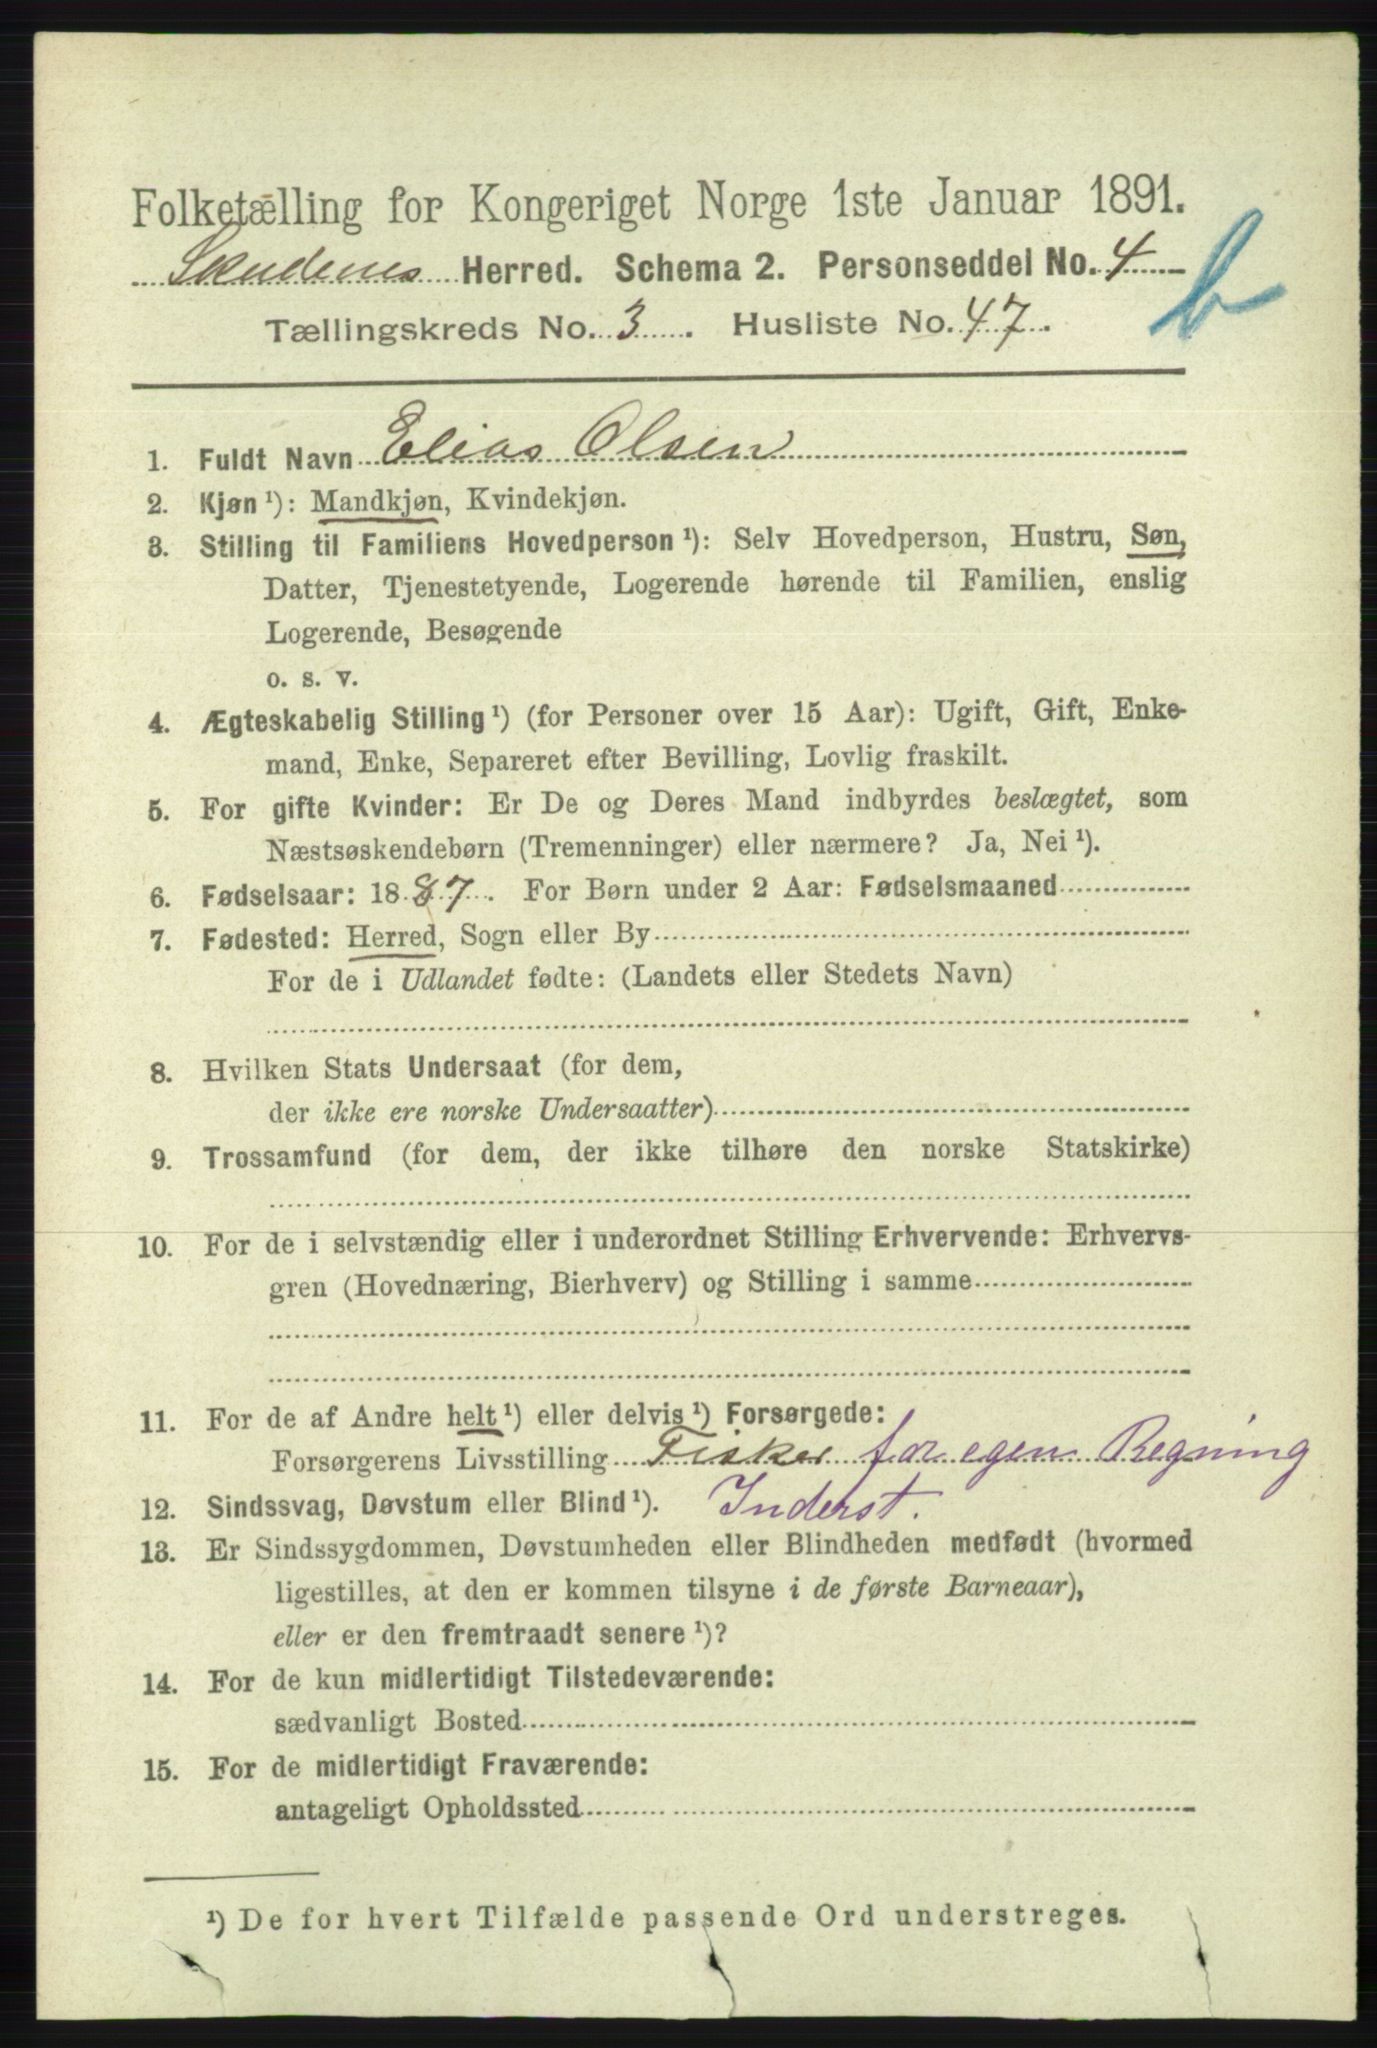 Folketælling for Kongeriget Norge 1ste Januar 1891.
Skudenes Herred. Schema 2. Personseddel No. 4
b
Tællingskreds No. 3. Husliste No. 47.
1. Fuldt Navn Elias Olsen
2. Kjøn ¹): Mandkjøn, Kvindekjøn.
3. Stilling til Familiens Hovedperson ¹): Selv Hovedperson, Hustru, Søn,
Datter, Tjenestetyende, Logerende hørende til Familien, enslig
Logerende, Besøgende
o. s. v.
4. Ægteskabelig Stilling ¹) (for Personer over 15 Aar): Ugift, Gift, Enke-
mand, Enke, Separeret efter Bevilling, Lovlig fraskilt.
5. For gifte Kvinder: Er De og Deres Mand indbyrdes beslægtet, som
Næstsøskendebørn (Tremenninger) eller nærmere? Ja, Nei ¹).
6. Fødselsaar: 1887. For Børn under 2 Aar: Fødselsmaaned
7. Fødested: Herred, Sogn eller By
For de i Udlandet fødte: (Landets eller Stedets Navn)
8. Hvilken Stats Undersaat (for dem,
der ikke ere norske Undersaatter)
9. Trossamfund (for dem, der ikke tilhøre den norske Statskirke)
10. For de i selvstændig eller i underordnet Stilling Erhvervende: Erhvervs-
gren (Hovednæring, Bierhverv) og Stilling i samme
11. For de af Andre helt ¹) eller delvis ¹) Forsørgede:
Forsørgerens Livsstilling Fisker for egen Regning
12. Sindssvag, Døvstum eller Blind ¹). Inderst.
13. Er Sindssygdommen, Døvstumheden eller Blindheden medfødt (hvormed
ligestilles, at den er kommen tilsyne i de første Barneaar),
eller er den fremtraadt senere ¹)?
14. For de kun midlertidigt Tilstedeværende:
sædvanligt Bosted
15. For de midlertidigt Fraværende:
antageligt Opholdssted
¹) De for hvert Tilfælde passende Ord understreges.